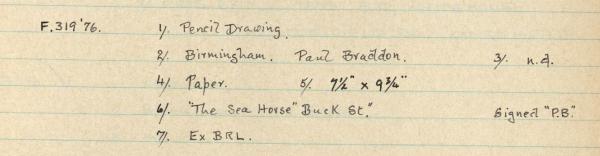 F.319'76. 1/. Pencil Drawing.
2/. Birmingham. Paul Braddon. 3/. n.d.
4/. Paper. 5/. 7½" x 9¾"
6/. "The Sea Horse" Buck St." Signed "P.B."
7/. Ex BRL.